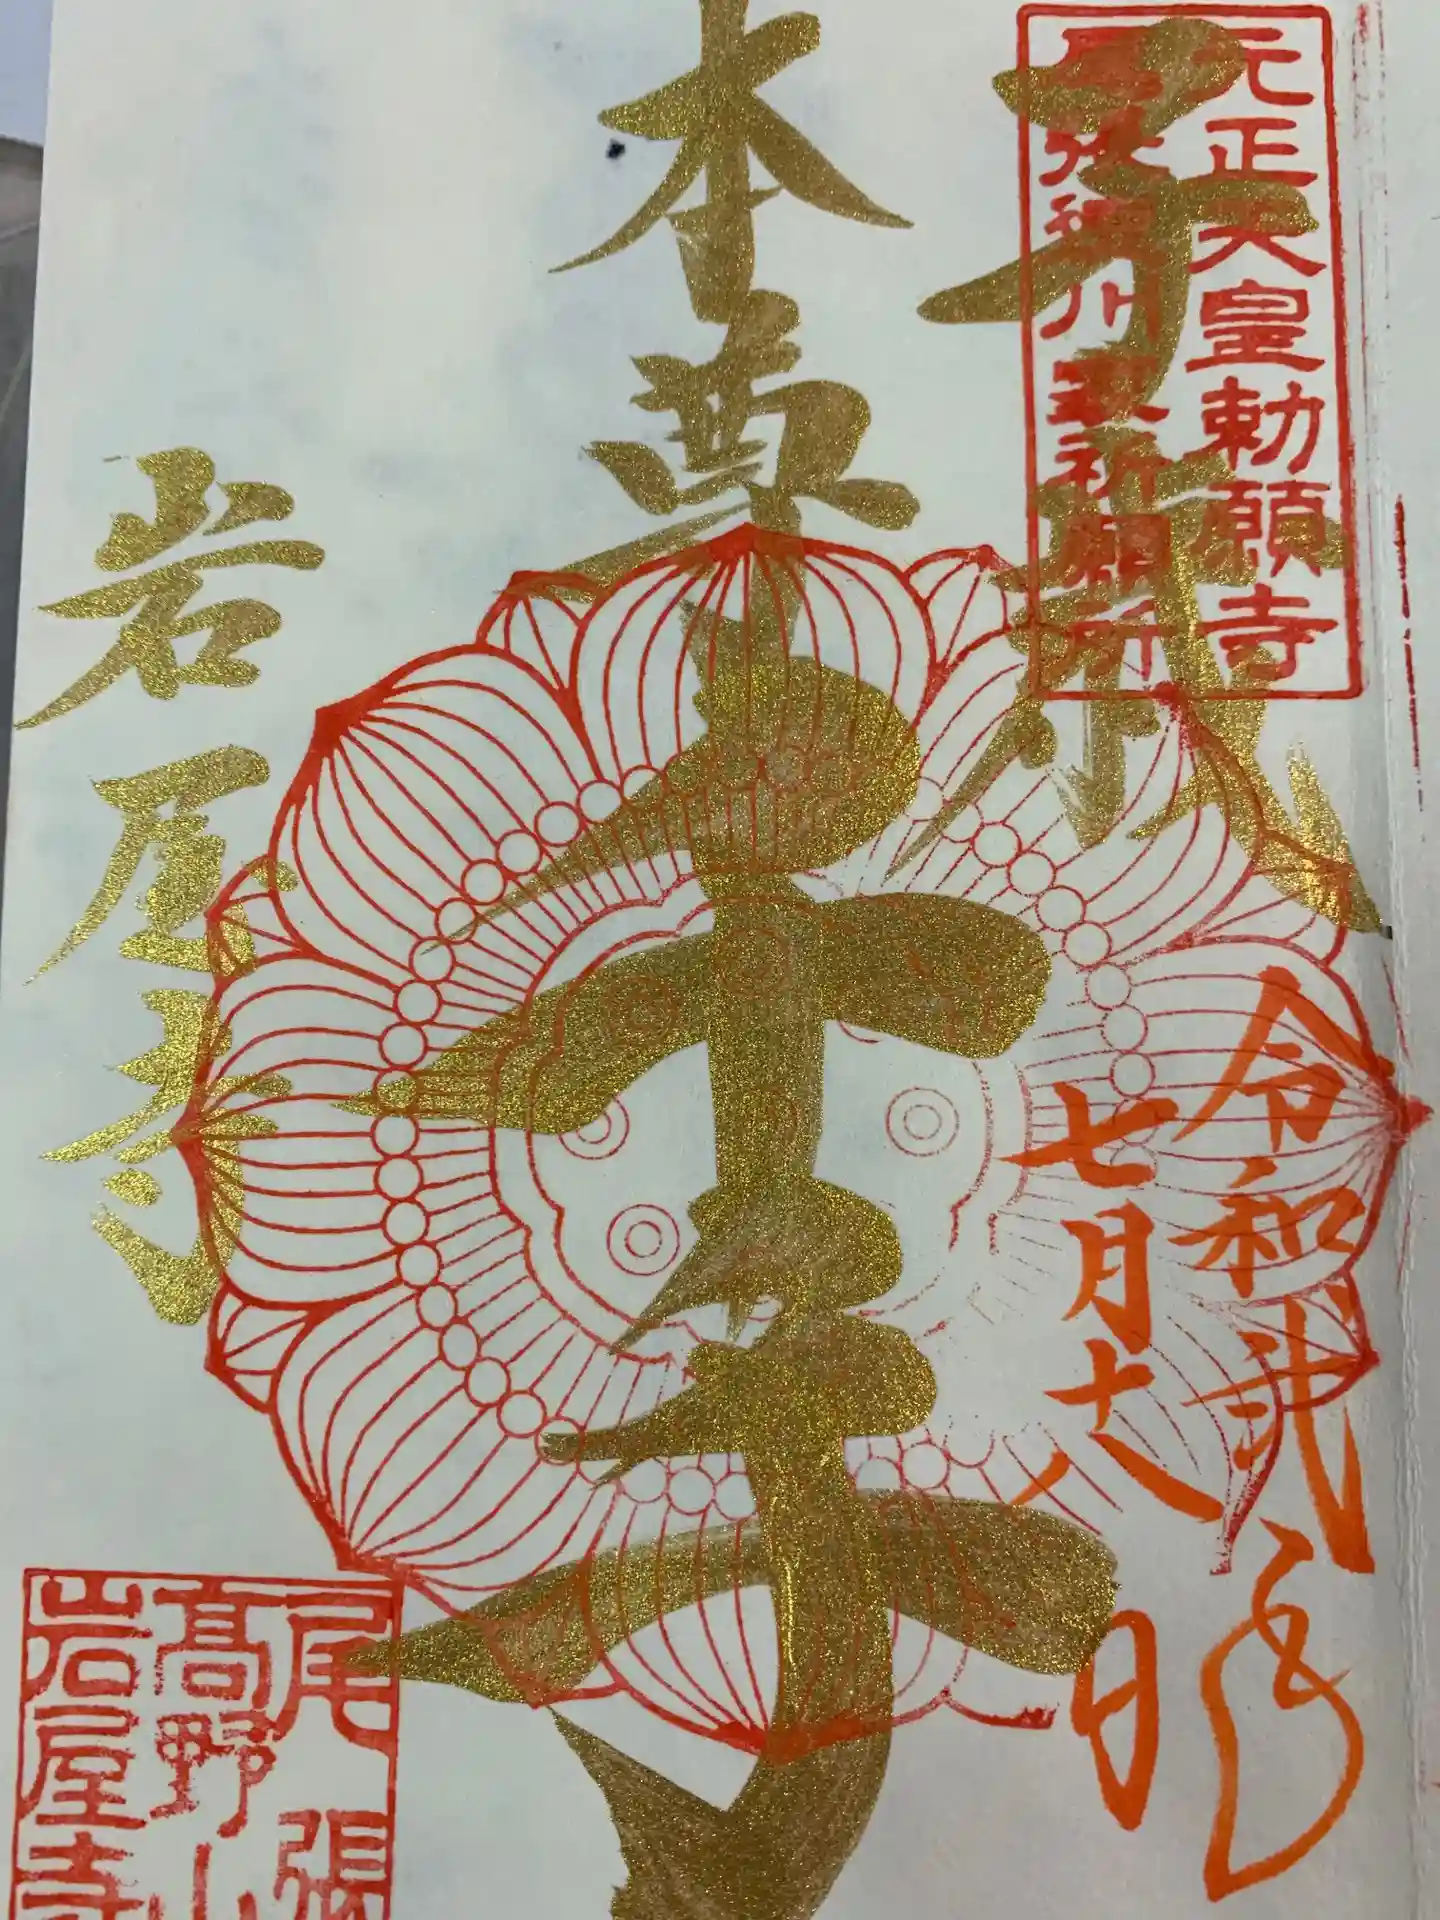 元正天皇勅願寺
尾張徳川家祈願所
令和弐年
七月十八日
本尊千手
岩屋寺
尾張
髙野山
岩屋寺